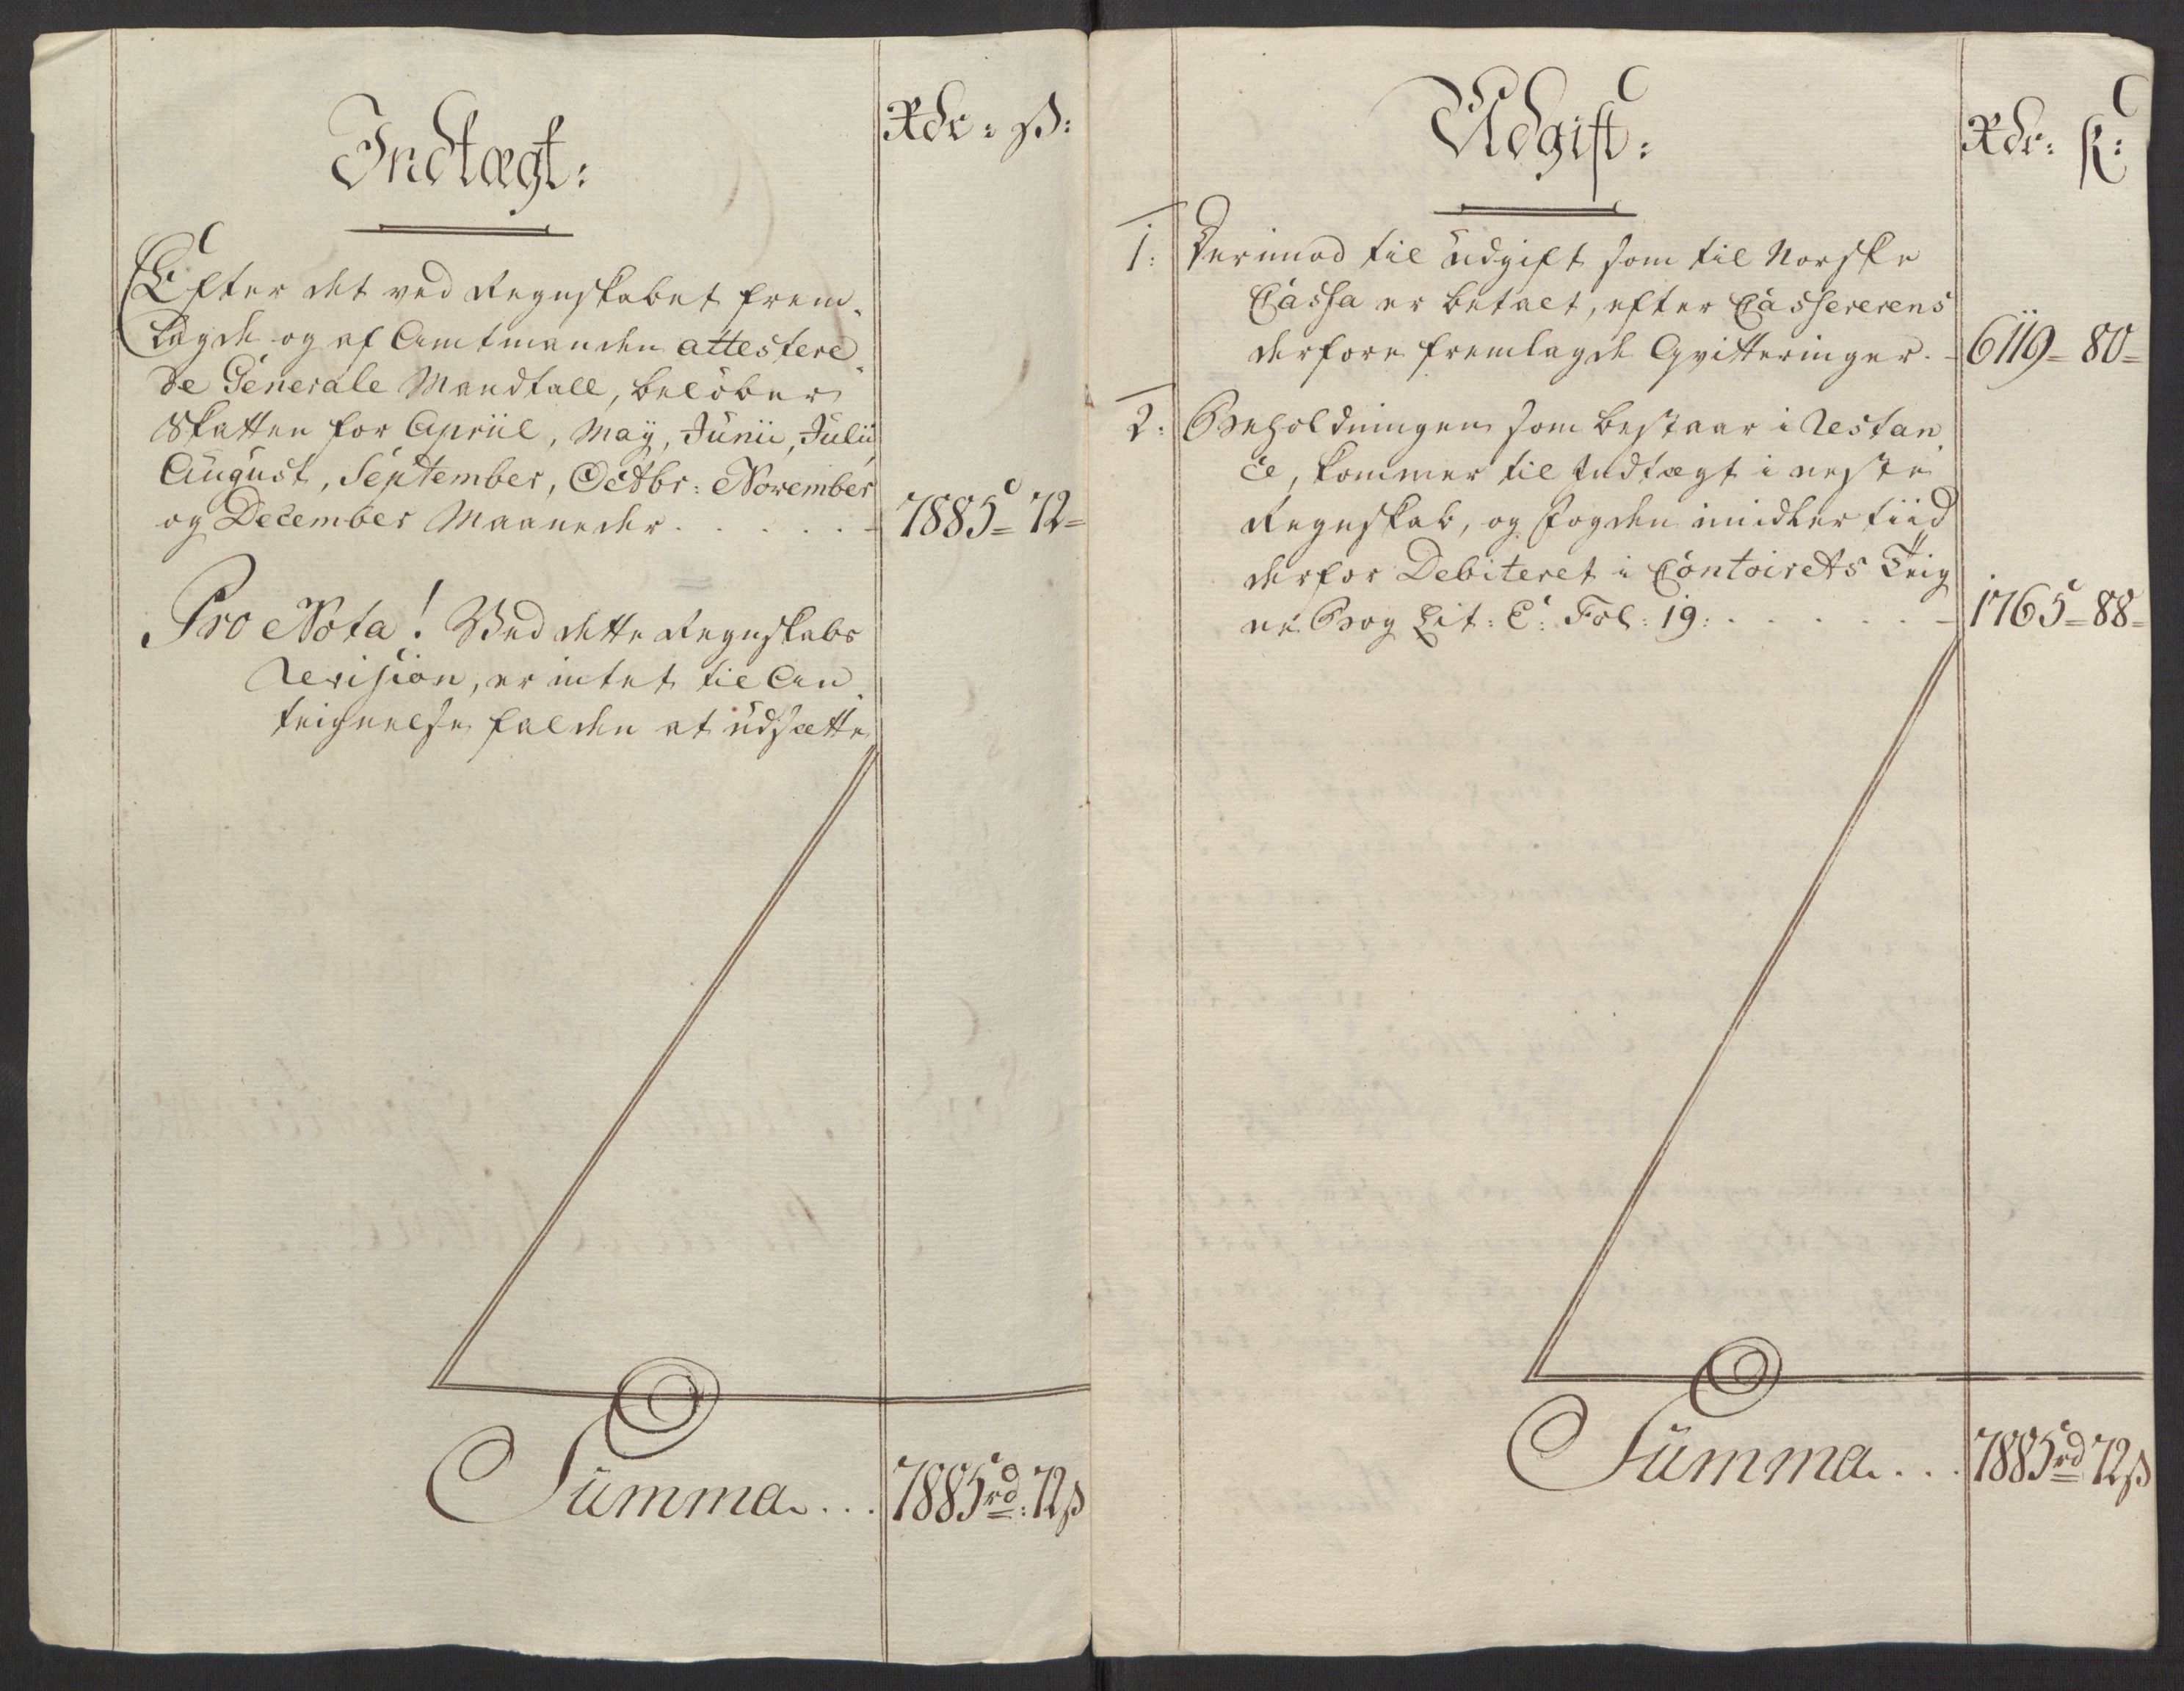 Indtægt:
Rdr: ß:
Efter det ved Regnskabet frem-
lagde og af Amtmanden attestere
de Generale Mandtall, belöber
Skatten for Apriil, Maÿ, Junii, Julii,
August, September, Octbr: November
og December Maaneder . . . . . 7885 = 72 =
Pro Nota! Ved dette Regnskabs
Revision, er intet til An
teignelse falden at udsætte
Summa . . . 7885 rd: 72 ß
Udgift:
Rdr: ß:
1: Derimod til Udgift som til Norske
Cassa er betalt, efter Cassererens
derfore fremlagde Qvitteringer. - 6119 = 80 =
2: Beholdningen som bestaar i Restan
ce, kommer til Indtægt i neste
Regnskab, og Fogden imidlertiid
derfor Debiteret i Contoirets Teig
ne Bog Lit: C: Fol: 19: . . . . . . - 1765 = 88 =
Summa . . . 7885 rd 72 ß